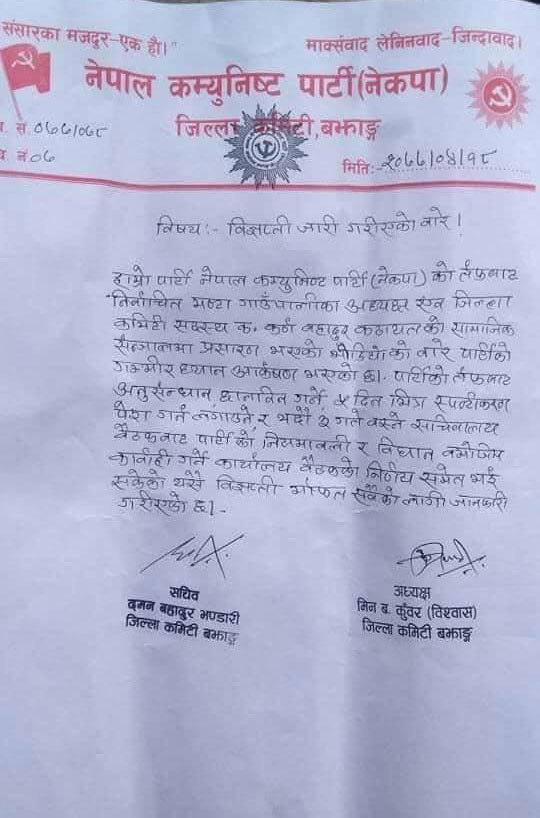 संसारका मजदुर-एक हौ।"
माक्संवाद लेनिनवाद-जिन्दावाद।
नेपाल कम्युनिष्ट पार्टी(नेकपा)
जिल्ला कमिटी, बझाङ्ग
. स. ०७७/०७८
नं ०७
मिति:- २०७७/०४/१८
विषय :- विज्ञप्ती जारी गरीएको बारे !
हाम्रो पार्टी नेपाल कम्युनिष्ट पार्टी (नेकपा) को तर्फबाट
निर्वाचित मष्टा गाउँपालीका अध्यक्ष एंव जिल्ला
कमिटी सदस्य क. कर्ण बहादुर कठायतको सामाजिक
सन्जालमा प्रसारण भएको भीडियो को बारे पार्टीको
गम्भीर ध्यान आर्कषण भएको छ।. पार्टीको तर्फबाट
अनुसन्धान छानविन गर्ने ५ दिन भित्र स्पष्टीकरण
पेश गर्न लगाउने र भदौ ३ गते बस्ने सचिवालय
बैठकबाट पार्टी को नियमावली र विधान बमोजिम
कार्वाही गर्ने कार्यालय बैठकको निर्णय समेत भई
सकेको यसै विज्ञप्ती मार्फत सबैको लागी जानकारी
गरीएको छ।.-
सचिव
दमन बहादुर भण्डारी
जिल्ला कमिटी बझाङ्ग
अध्यक्ष
मिन ब. कुँवर (विश्वास)
जिल्ला कमिटी बझाङ्ग